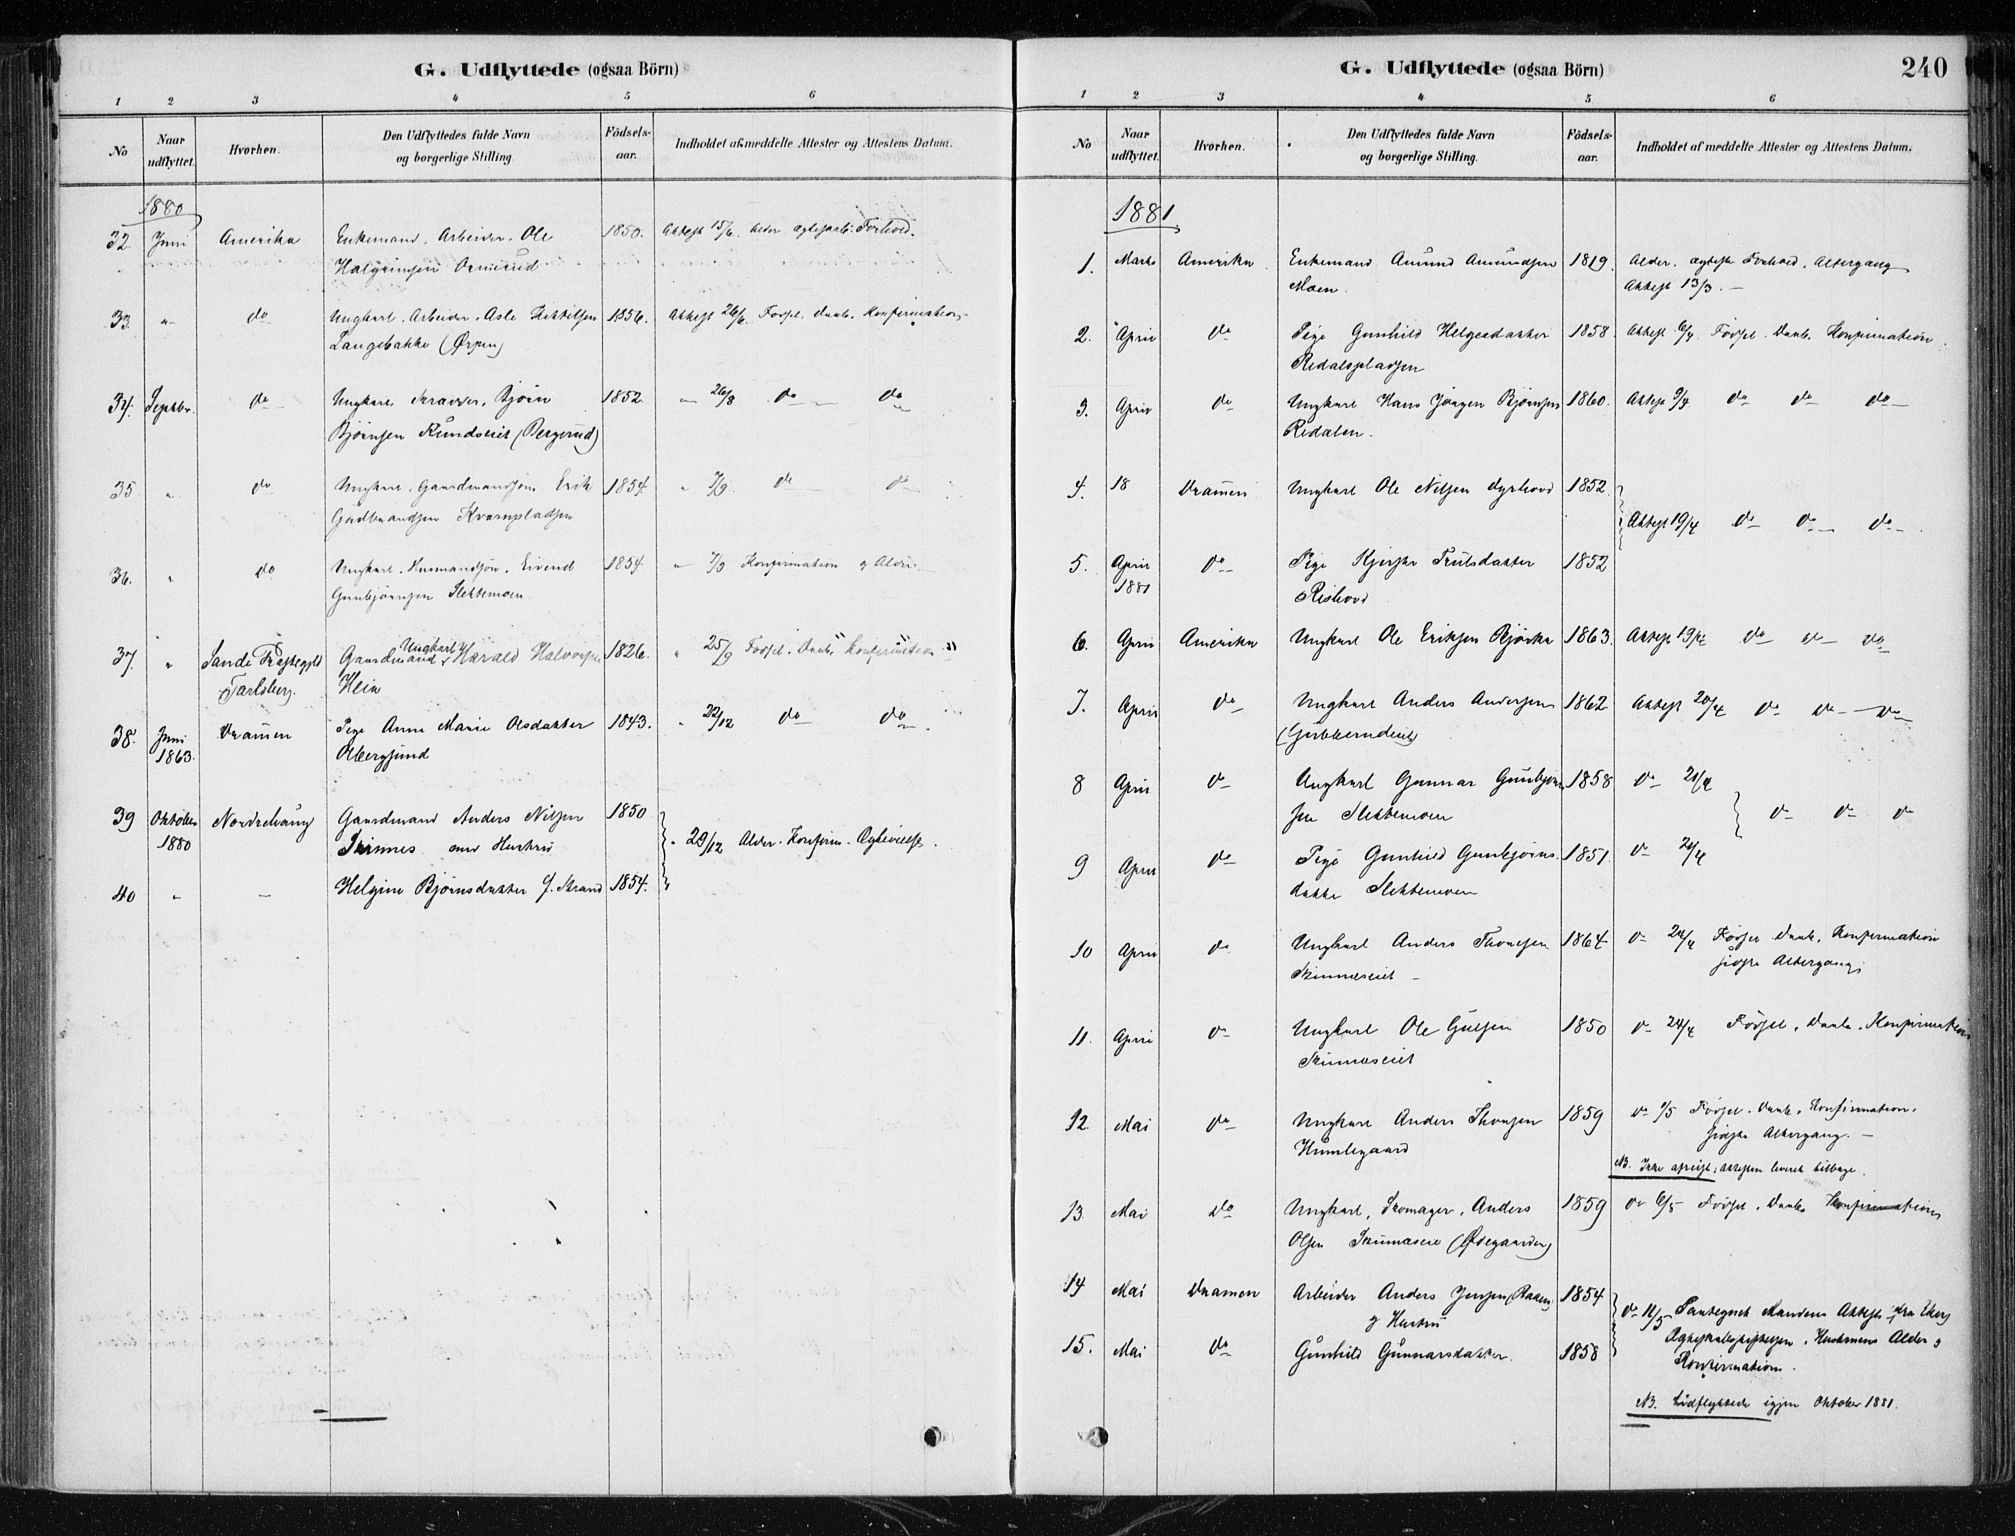 G. Udflyttede (ogsaa Börn)
1 2 3 4 5 6
No
Naar udflyttet.
Hvorhen.
Den Udflyttedes fulde Navn og borgerlige Stilling.
Födsels-aar.
Indholdet af meddelte Attester og Attestens Datum.
1880
32. Juni Amerika Enkemand. Arbeider. Ole 1850. Attest 15/6. Alder. Forhold.
Halgrimsen Ormerud
33. " do Ungkarl. Arbeider. Asle 1856. Attest 26/6. Födsel. Daab. Konfirmation
Langebakke
34. Septbr. do Ungkarl. Bjørn 1852. " 26/8 do do
Bjørnsen (Bergerud)
35 " do Ungkarl. Gaardmandsøn Erik 1854. " 7/9. do do
Gudbrandsen Kvernpladsen
36. " do Ungkarl. Husmandsøn. Eivind 1854. " 7/9 Konfirmation og Alder
Gunbjørnsen Slettemoen
37. " Sande Præstegjeld Ungkarl Gaardmand Harald Halvorsen 1826. " 25/9 Födsel. Daab. Konfirmation
Jarlsberg. Hein
38. Juni Dramen Pige Anne Marie Olsdatter 1843. " 22/12 do do
1863. Olbergsund
39 Oktober Gaardmand Anders Nilsen 1850
1880 Skinnes med Hustru " 29/12 Alder. Konfirm. Egtevielse.
40 " — Helgine Bjørnsdatter f. Strand 1854.
G. Udflyttede (ogsaa Börn)
240
1 2 3 4 5 6
No
Naar udflyttet.
Hvorhen.
Den Udflyttedes fulde Navn og borgerlige Stilling.
Födsels-aar.
Indholdet af meddelte Attester og Attestens Datum.
1881
1. Marts Amerika Enkemand Amund Amundsen 1819. Alder. Forhold. Altergang
Moen. Attest 13/3. —
2. April do Pige Gunhild Helgesdatter 1858. Attest 6/4. Födsel. Daab. Konfirmation
Redalspladsen
3. April do Ungkarl Hans Jörgen Bjørnsen 1860. Attest 9/4 do do do
Redalen.
4. 18 Dramen Ungkarl Ole Nilsen Dyrhovd 1852.
Attest 19/4 do do do
5. April do Pige Trulsdatter 1852
1881 Rishovd
6. April Amerika Ungkarl Ole Eriksen 1863. Attest 19/4 do do do
7. April do Ungkarl Anders Andersen 1862 Attest 20/4 do do do
8 April do Ungkarl Gunnar Gunbjørn 1858 do 21/4
sen Slettemoen do do do
9 April do Pige Gunhild Gunbjørns 1851. do 21/4
datter Slettemoen
10 April do Ungkarl Anders Thorsen 1864 do 24/4 Födsel Daab. Konfirmation
Skinneseiet — sidste Altergang
11. April do Ungkarl Ole Gulsen 1850 do 24/4 Födsel. Daab. Konfirmation
Skinneseiet
12. Mai do Ungkarl Anders Thorsen 1859 do 1/5 Födsel. Daab. Konfirmation.
Humlegaard sidste Altergang. —
NB. Ikke afreist; attesten leveret tilbage.
13. Mai do Ungkarl, Skomager, Anders 1859 do 6/5 Födsel. Daab. Konfirmation
Olsen Skinneseie (Ødegaarden)
14 Mai Dramen Arbeider Anders Jensen 1854
& Hustru do 11/5 Paategnet Mandens Attest fra Eker
15. Mai do Gunhild Gunnarsdatter. 1858 Hustruens Alder &
Konfirmation.
NB. Indflyttede igjen Oktober 1881.